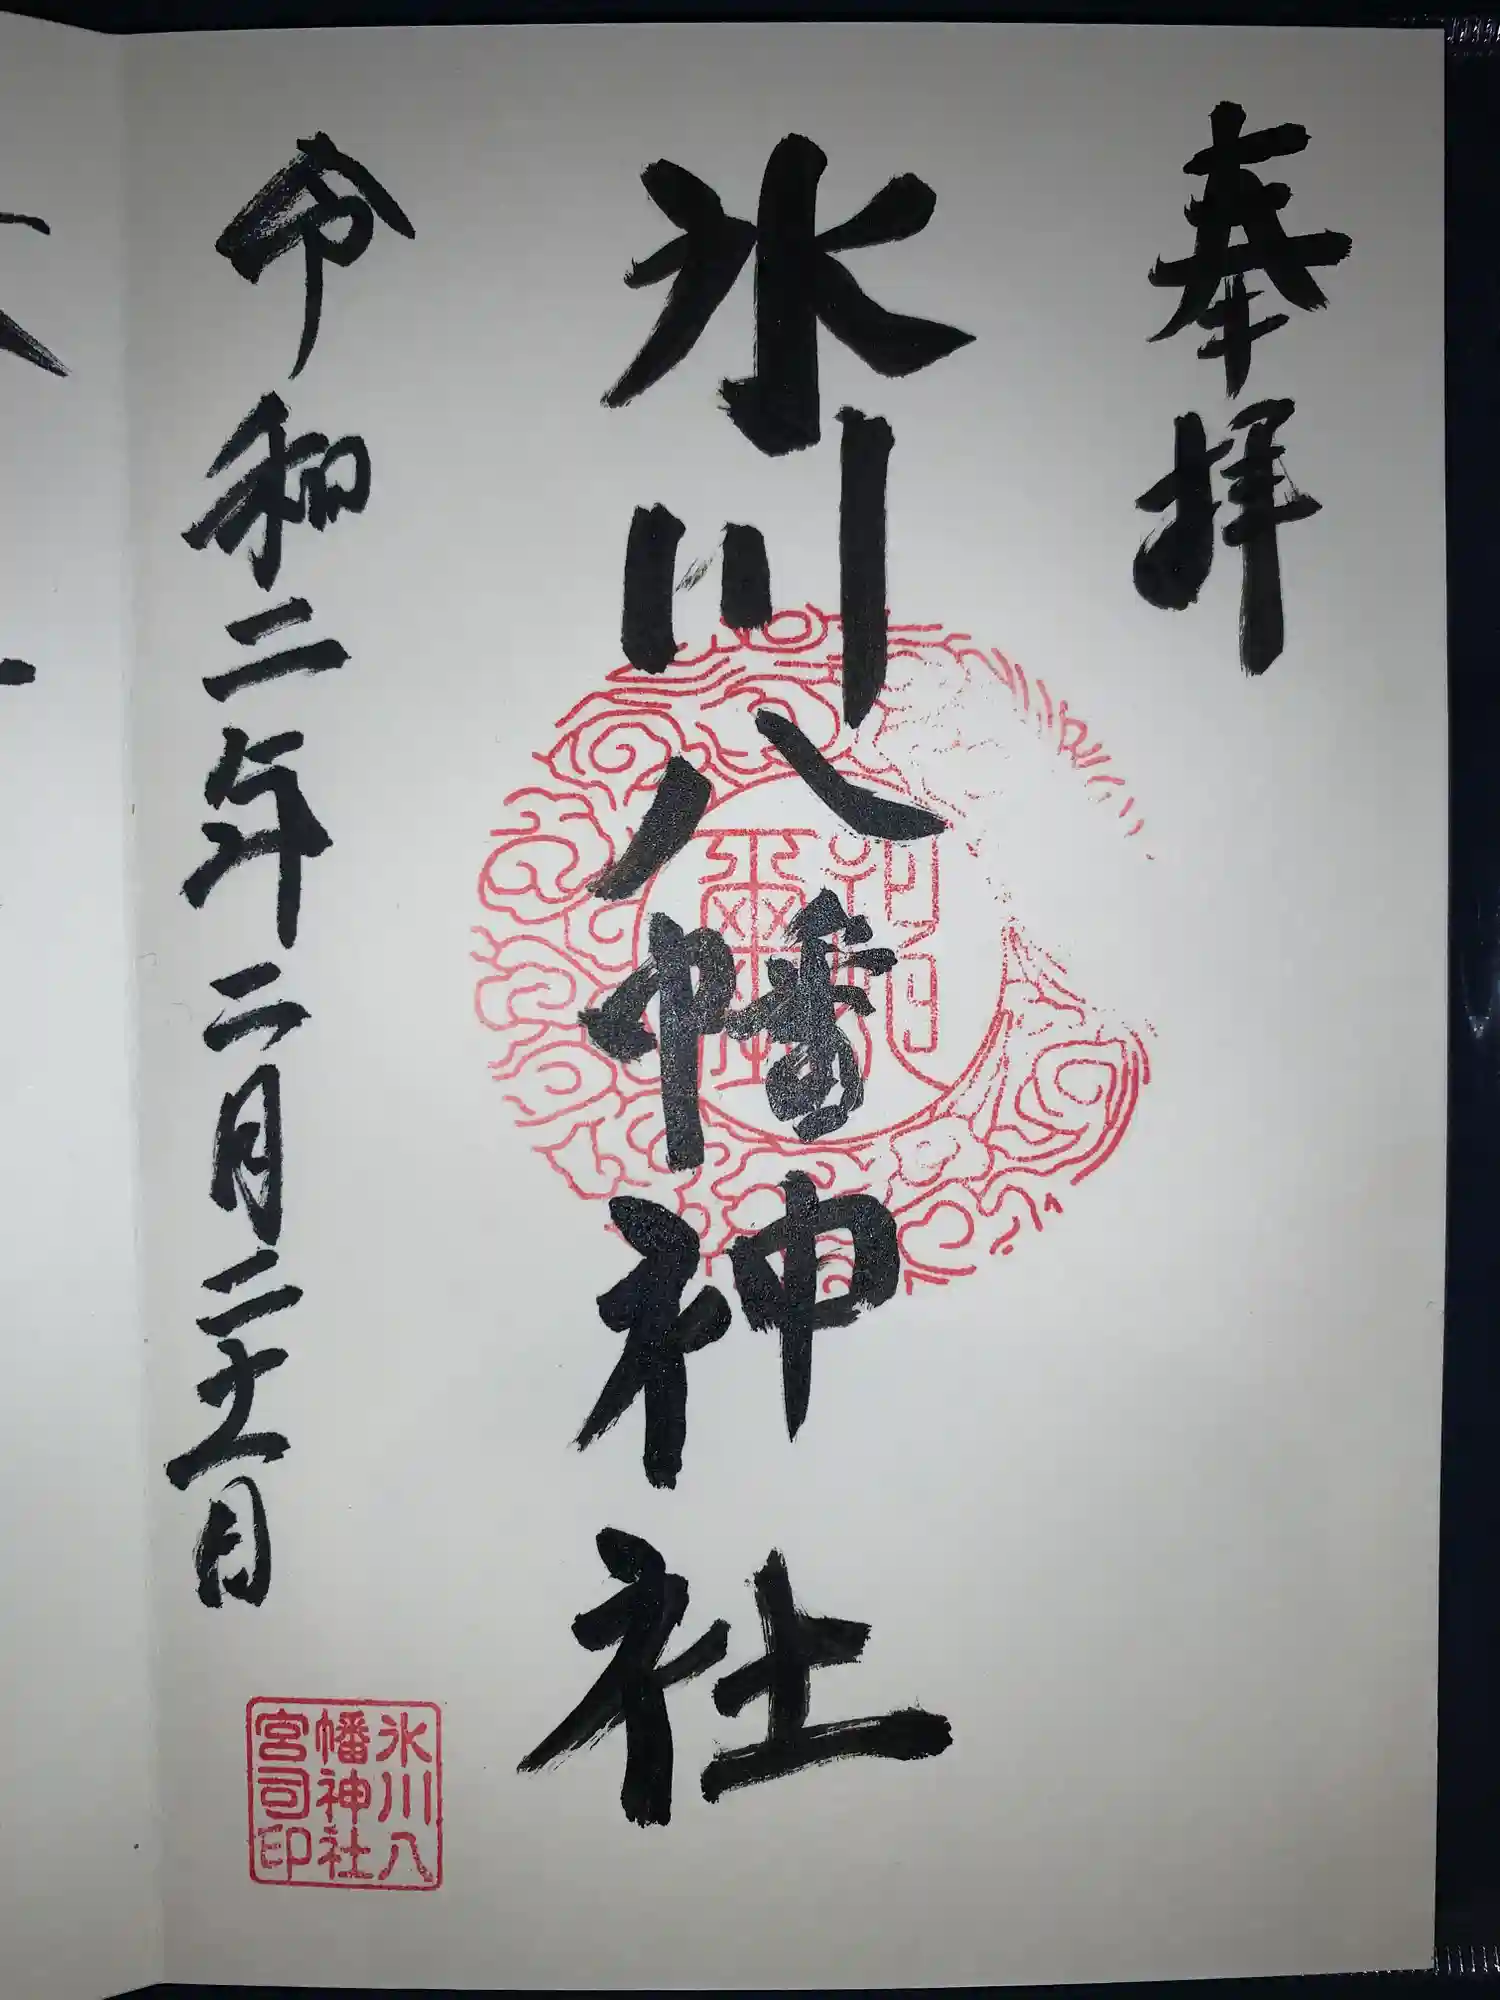 奉拝
氷川八幡神社
令和二年二月二十一日
氷川八
幡神社
宮司印